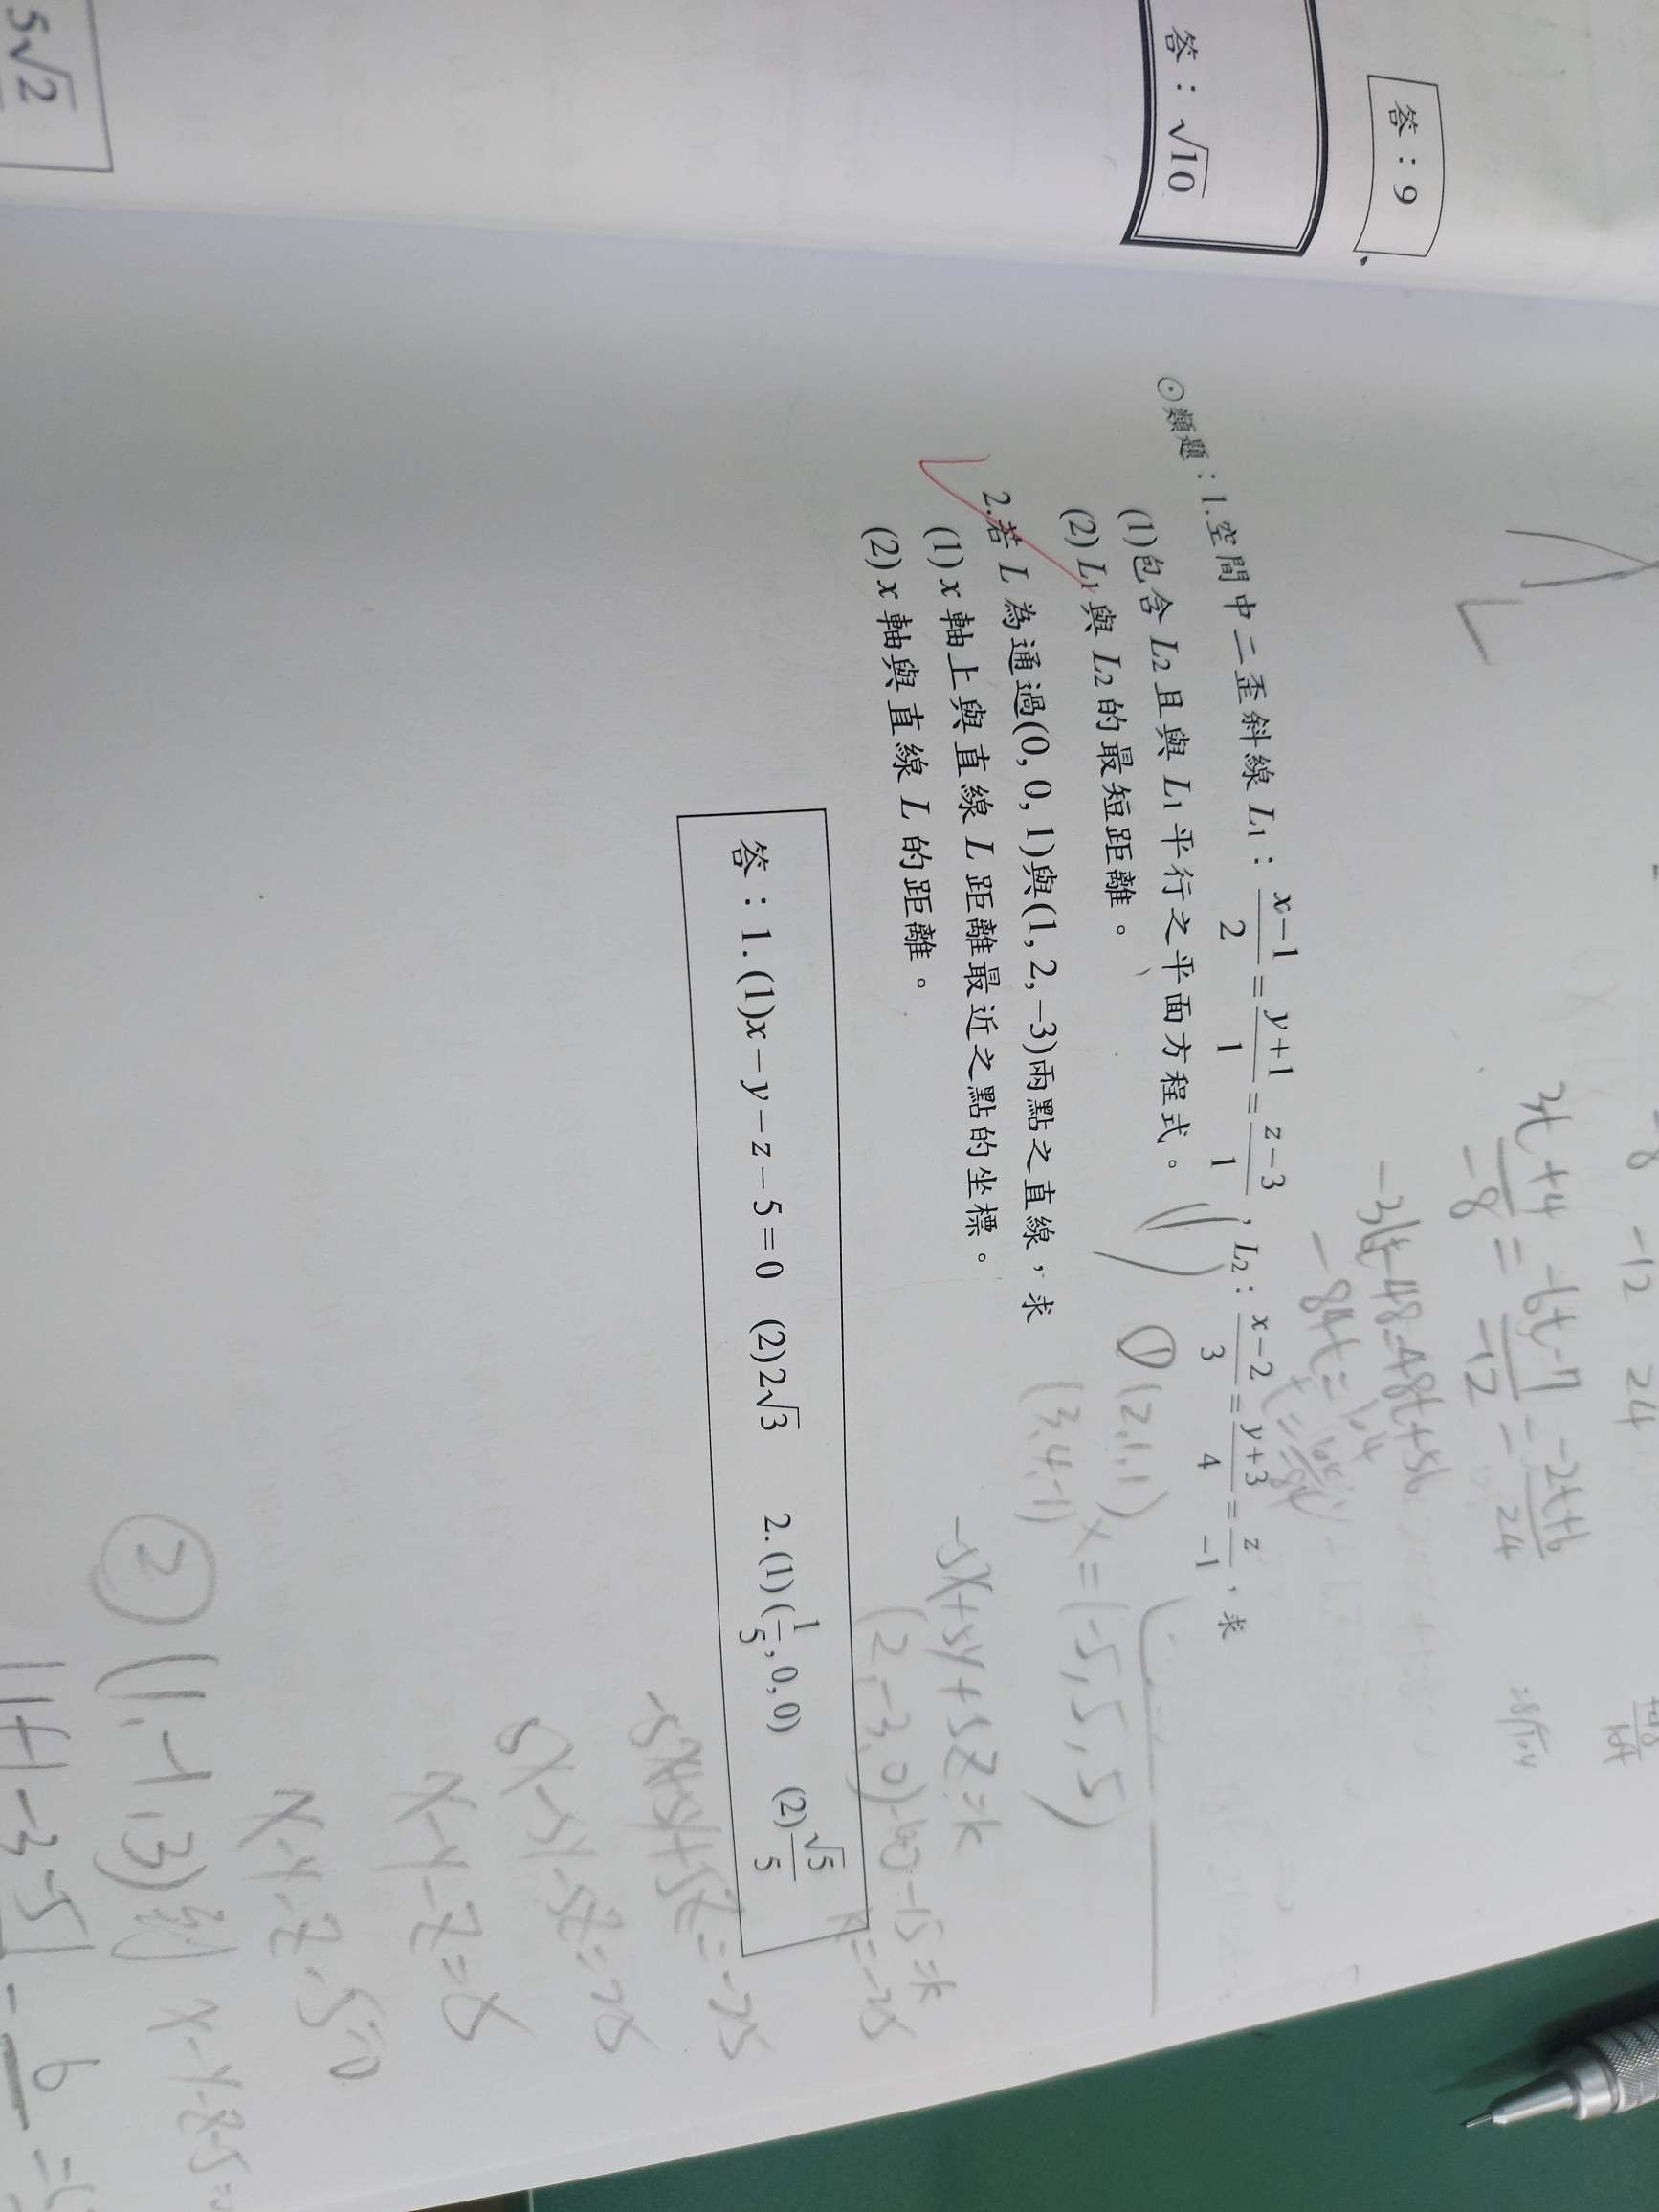 答：9
答：√10
5√2
⊙類題：1.空間中二歪斜線 L₁：(x−1)/2=(y+1)/1=(z−3)/1，L₂：(x−2)/3=(y+3)/4=z/−1，求
(1)包含 L₂ 且與 L₁ 平行之平面方程式。
(2) L₁ 與 L₂ 的最短距離。
2.若 L 為通過(0, 0, 1)與(1, 2, −3)兩點之直線，求
(1) x 軸上與直線 L 距離最近之點的坐標。
(2) x 軸與直線 L 的距離。
答：1. (1)x−y−z−5=0 (2)2√3 2. (1)(1/5, 0, 0) (2)√5/5
-12 24
3t+4/-8 = -6t-7/-12 = -2t+6/24
① (2,1,1)
(3,4,-1) × = (-5,5,5)
-5x+5y+5z=k
(2,-3,0)
-15=k
k=-25
-5x+5y+5z=-25
5x-5y-5z=25
x-y-z-5=0
② (1,-1,3) 到 x-y-z-5=
|1+1-3-5|
6